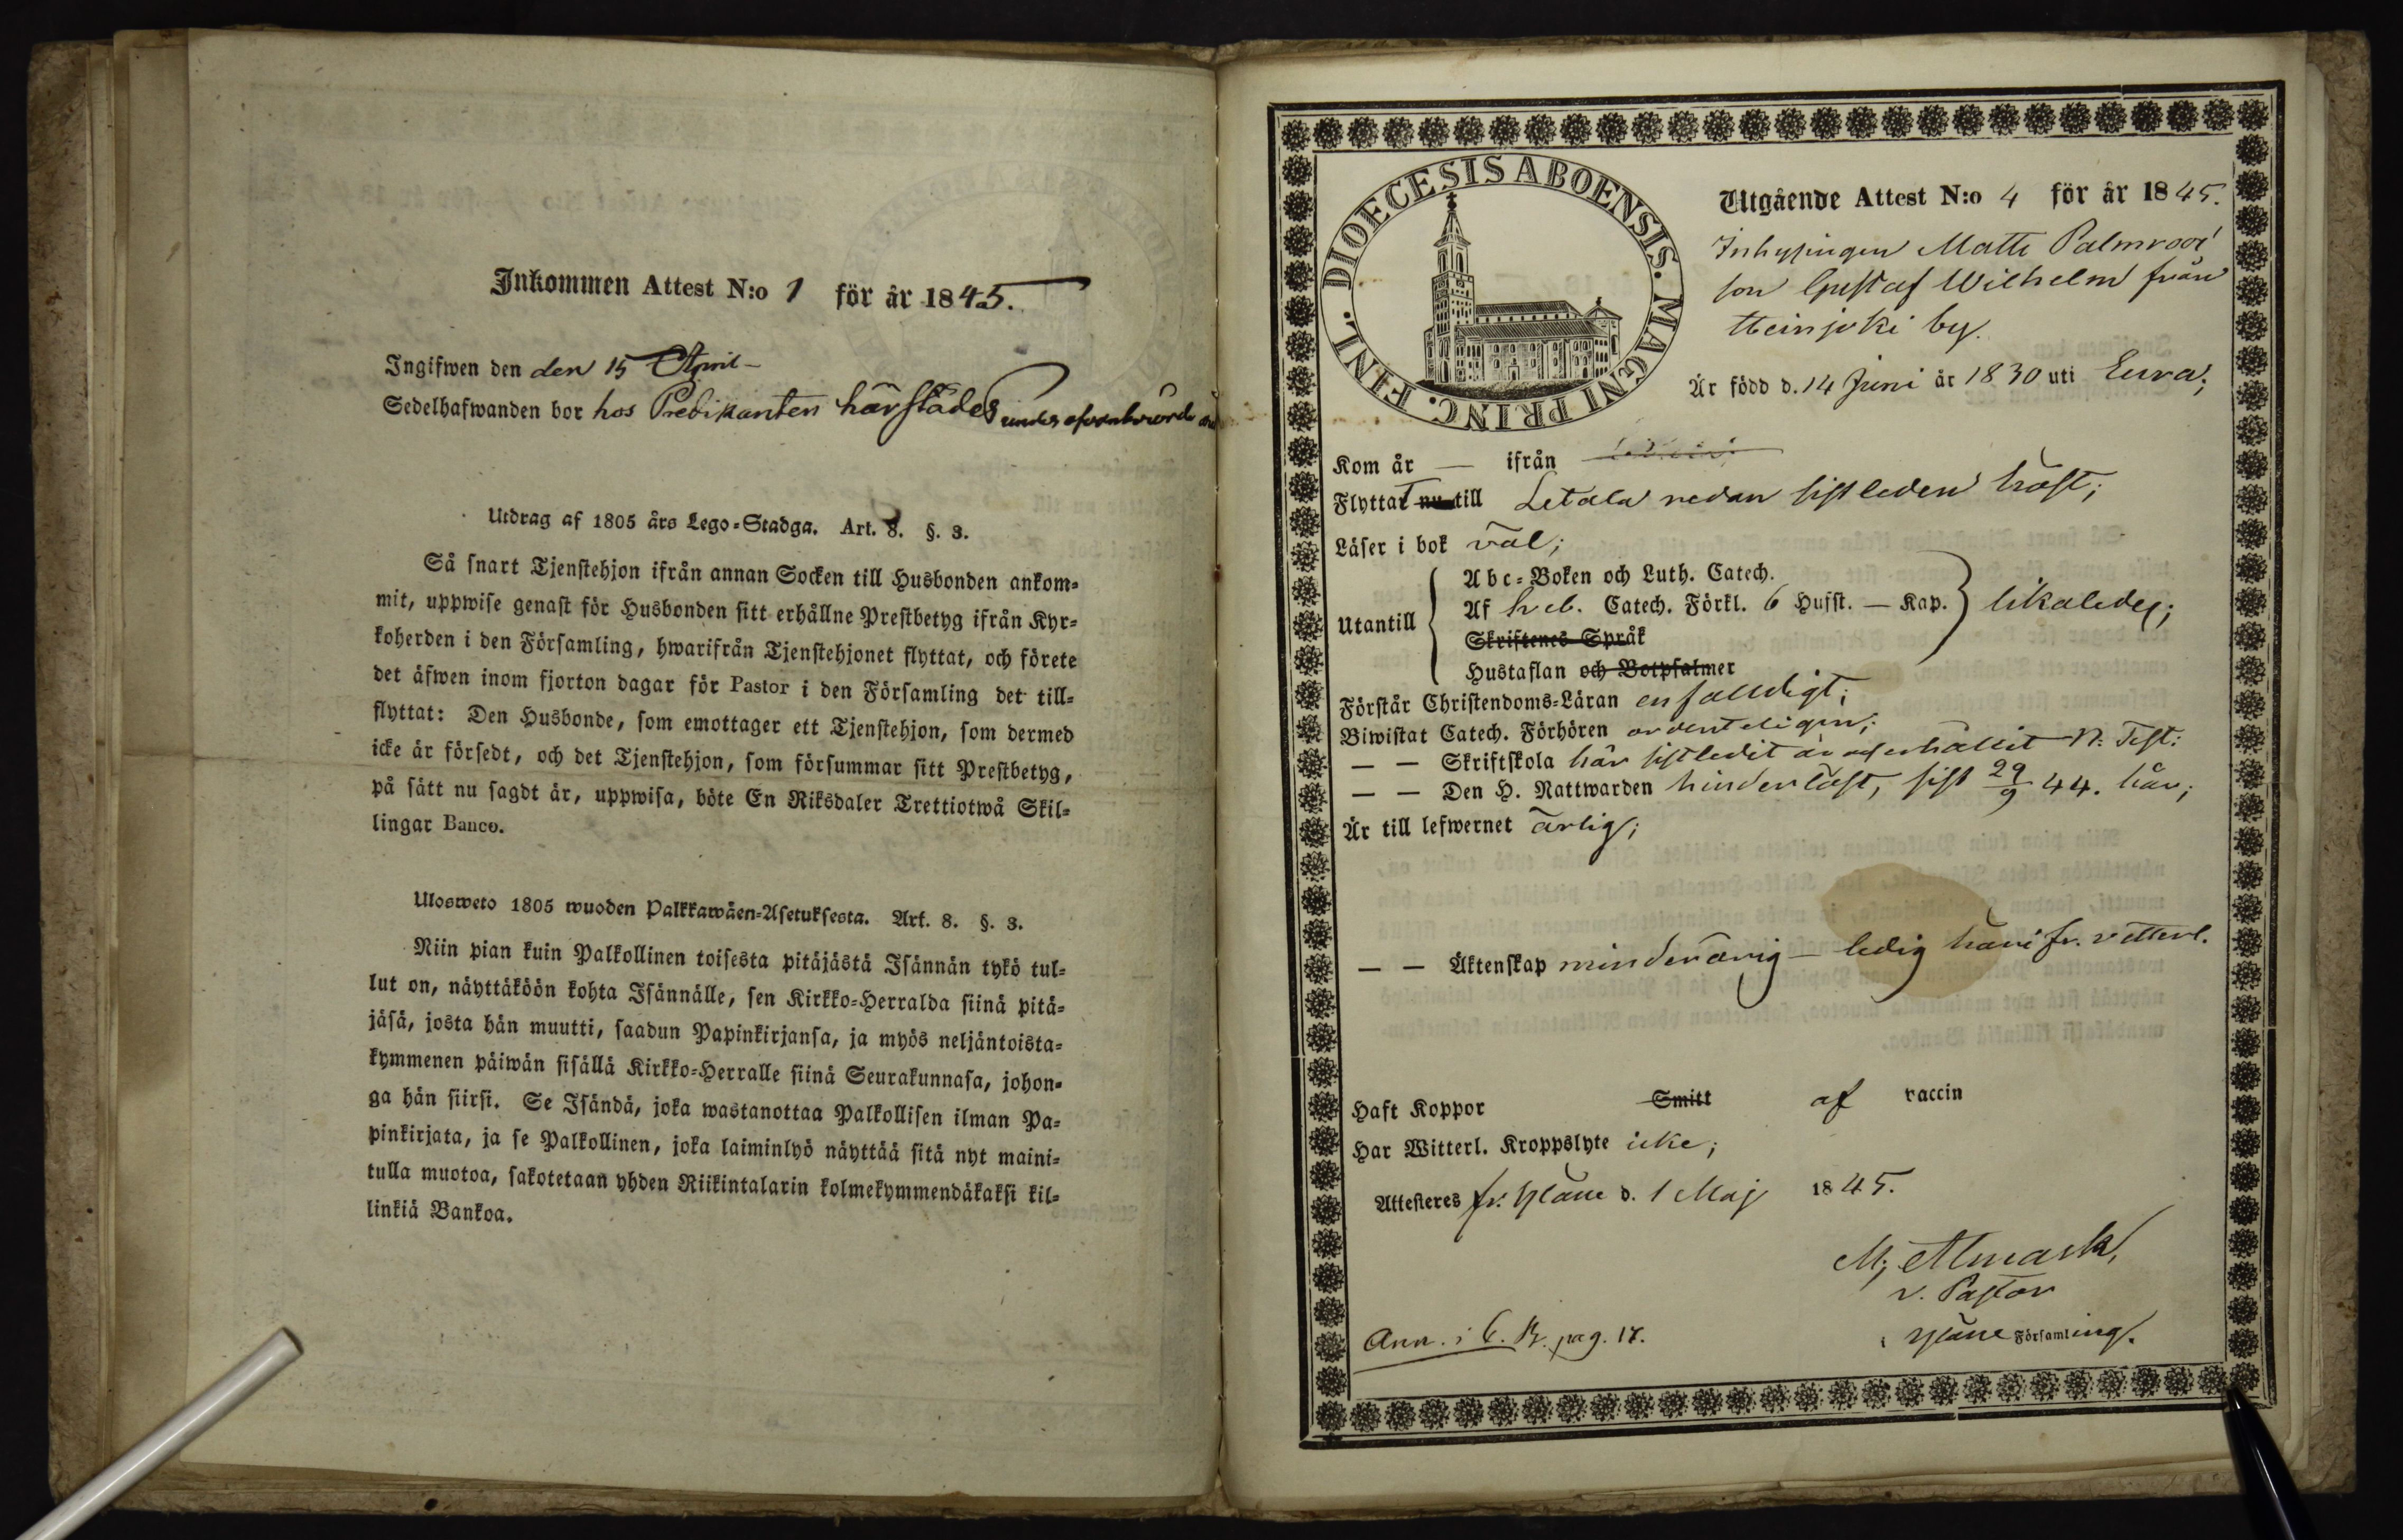 Inkommen Attest N:o 1 för år 1845.
Ingifwen den den 15 April
Sedelhafwanden bor hos Predikanten härstädes under
Utdrag af 1805 års Lego-Stadga. Art. 8. §. 3.
Så snart Tjenstehjon ifrån annan Socken till Husbonden ankom-
mit, uppwise genast för Husbonden sitt erhållne Prestbetyg ifrån Kyr-
koherden i den Församling, hwarifrån Tjenstehjonet flyttat, och förete
det äfwen inom fjorton dagar för Pastor i den Församling det till-
flyttat: Den Husbonde, som emottager ett Tjenstehjon, som dermed
icke är försedt, och det Tjenstehjon, som försummar sitt Prestbetyg,
på sätt nu sagdt är, uppwisa, böte En Riksdaler Trettiotwå Skil-
lingar Banco.
Ulosweto 1805 wuoden Palkkawäen-Asetuksesta. Art. 8. §. 3.
Niin pian kuin Palkollinen toisesta pitäjästä Isännän tykö tul-
lut on, näyttäköön kohta Isännälle, sen Kirkko-Herralda siinä pitä-
jäsä, josta hän muutti, saadun Papinkirjansa, ja myös neljäntoista-
kymmenen päiwän sisällä Kirkko-Herralle siinä Seurakunnasa, johon-
ga hän siirsi. Se Isändä, joka wastanottaa Palkollisen ilman Pa-
pinkirjata, ja se Palkollinen, joka laiminlyö näyttää sitä nyt maini-
tulla muotoa, sakotetaan yhden Riikintalarin kolmekymmendäkaksi kil-
linkiä Bankoa.
DIOECESIS ABOENSIS. MAGNI PRINC. FINL.
Utgående Attest N:o 4 för år 1845.
Inhysingen Matts Palmroos'
son Gustaf Wilhelm från
Heinjoki by.
Är född d. 14 Juni år 1830 uti Eura;
Kom år — ifrån
Flyttat nu till Letala redan sistleden höst;
Läser i bok väl;
Utantill
Abc-Boken och Luth. Catech.
Af heb. Catech. Förkl. 6 Husst. — Kap. likaledes;
Skriftenes Språk
Hustaflan och Botpsalmer
Förstår Christendoms-Läran enfalldigt;
Biwistat Catech. Förhören ordenteligen;
— — Skriftskola här sistledit år och erhållit N. Test:
— — Den H. Nattwarden hinderlöst, sist 29/9 44. här;
Är till lefwernet ärlig;
— — Äktenskap minderårig — ledig härifr. vetterl.
Haft Koppor Smitt af vaccin
Har Witterl. Kroppslyte icke;
Attesteres fr. Yläne d. 1 Maj 1845.
M. Almark,
v. Pastor
i Yläne Församling.
Ann. i C. B. pag. 17.